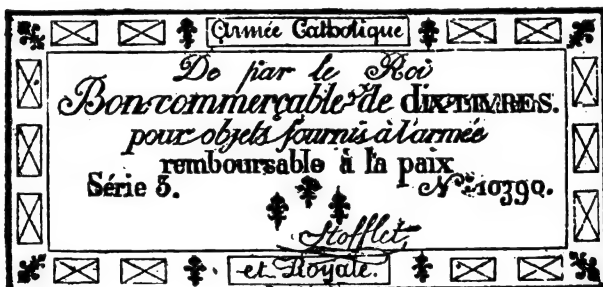 Armée Catholique
De par le Roi
Bon commerçable de DIX LIVRES.
pour objets fournis à l'armée
remboursable à la paix
Série 3. Nº 10390.
Stofflet
et Royale.